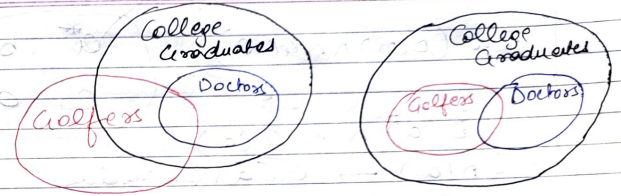 College
Graduates
Doctors
Golfers
College
Graduates
Golfers
Doctors